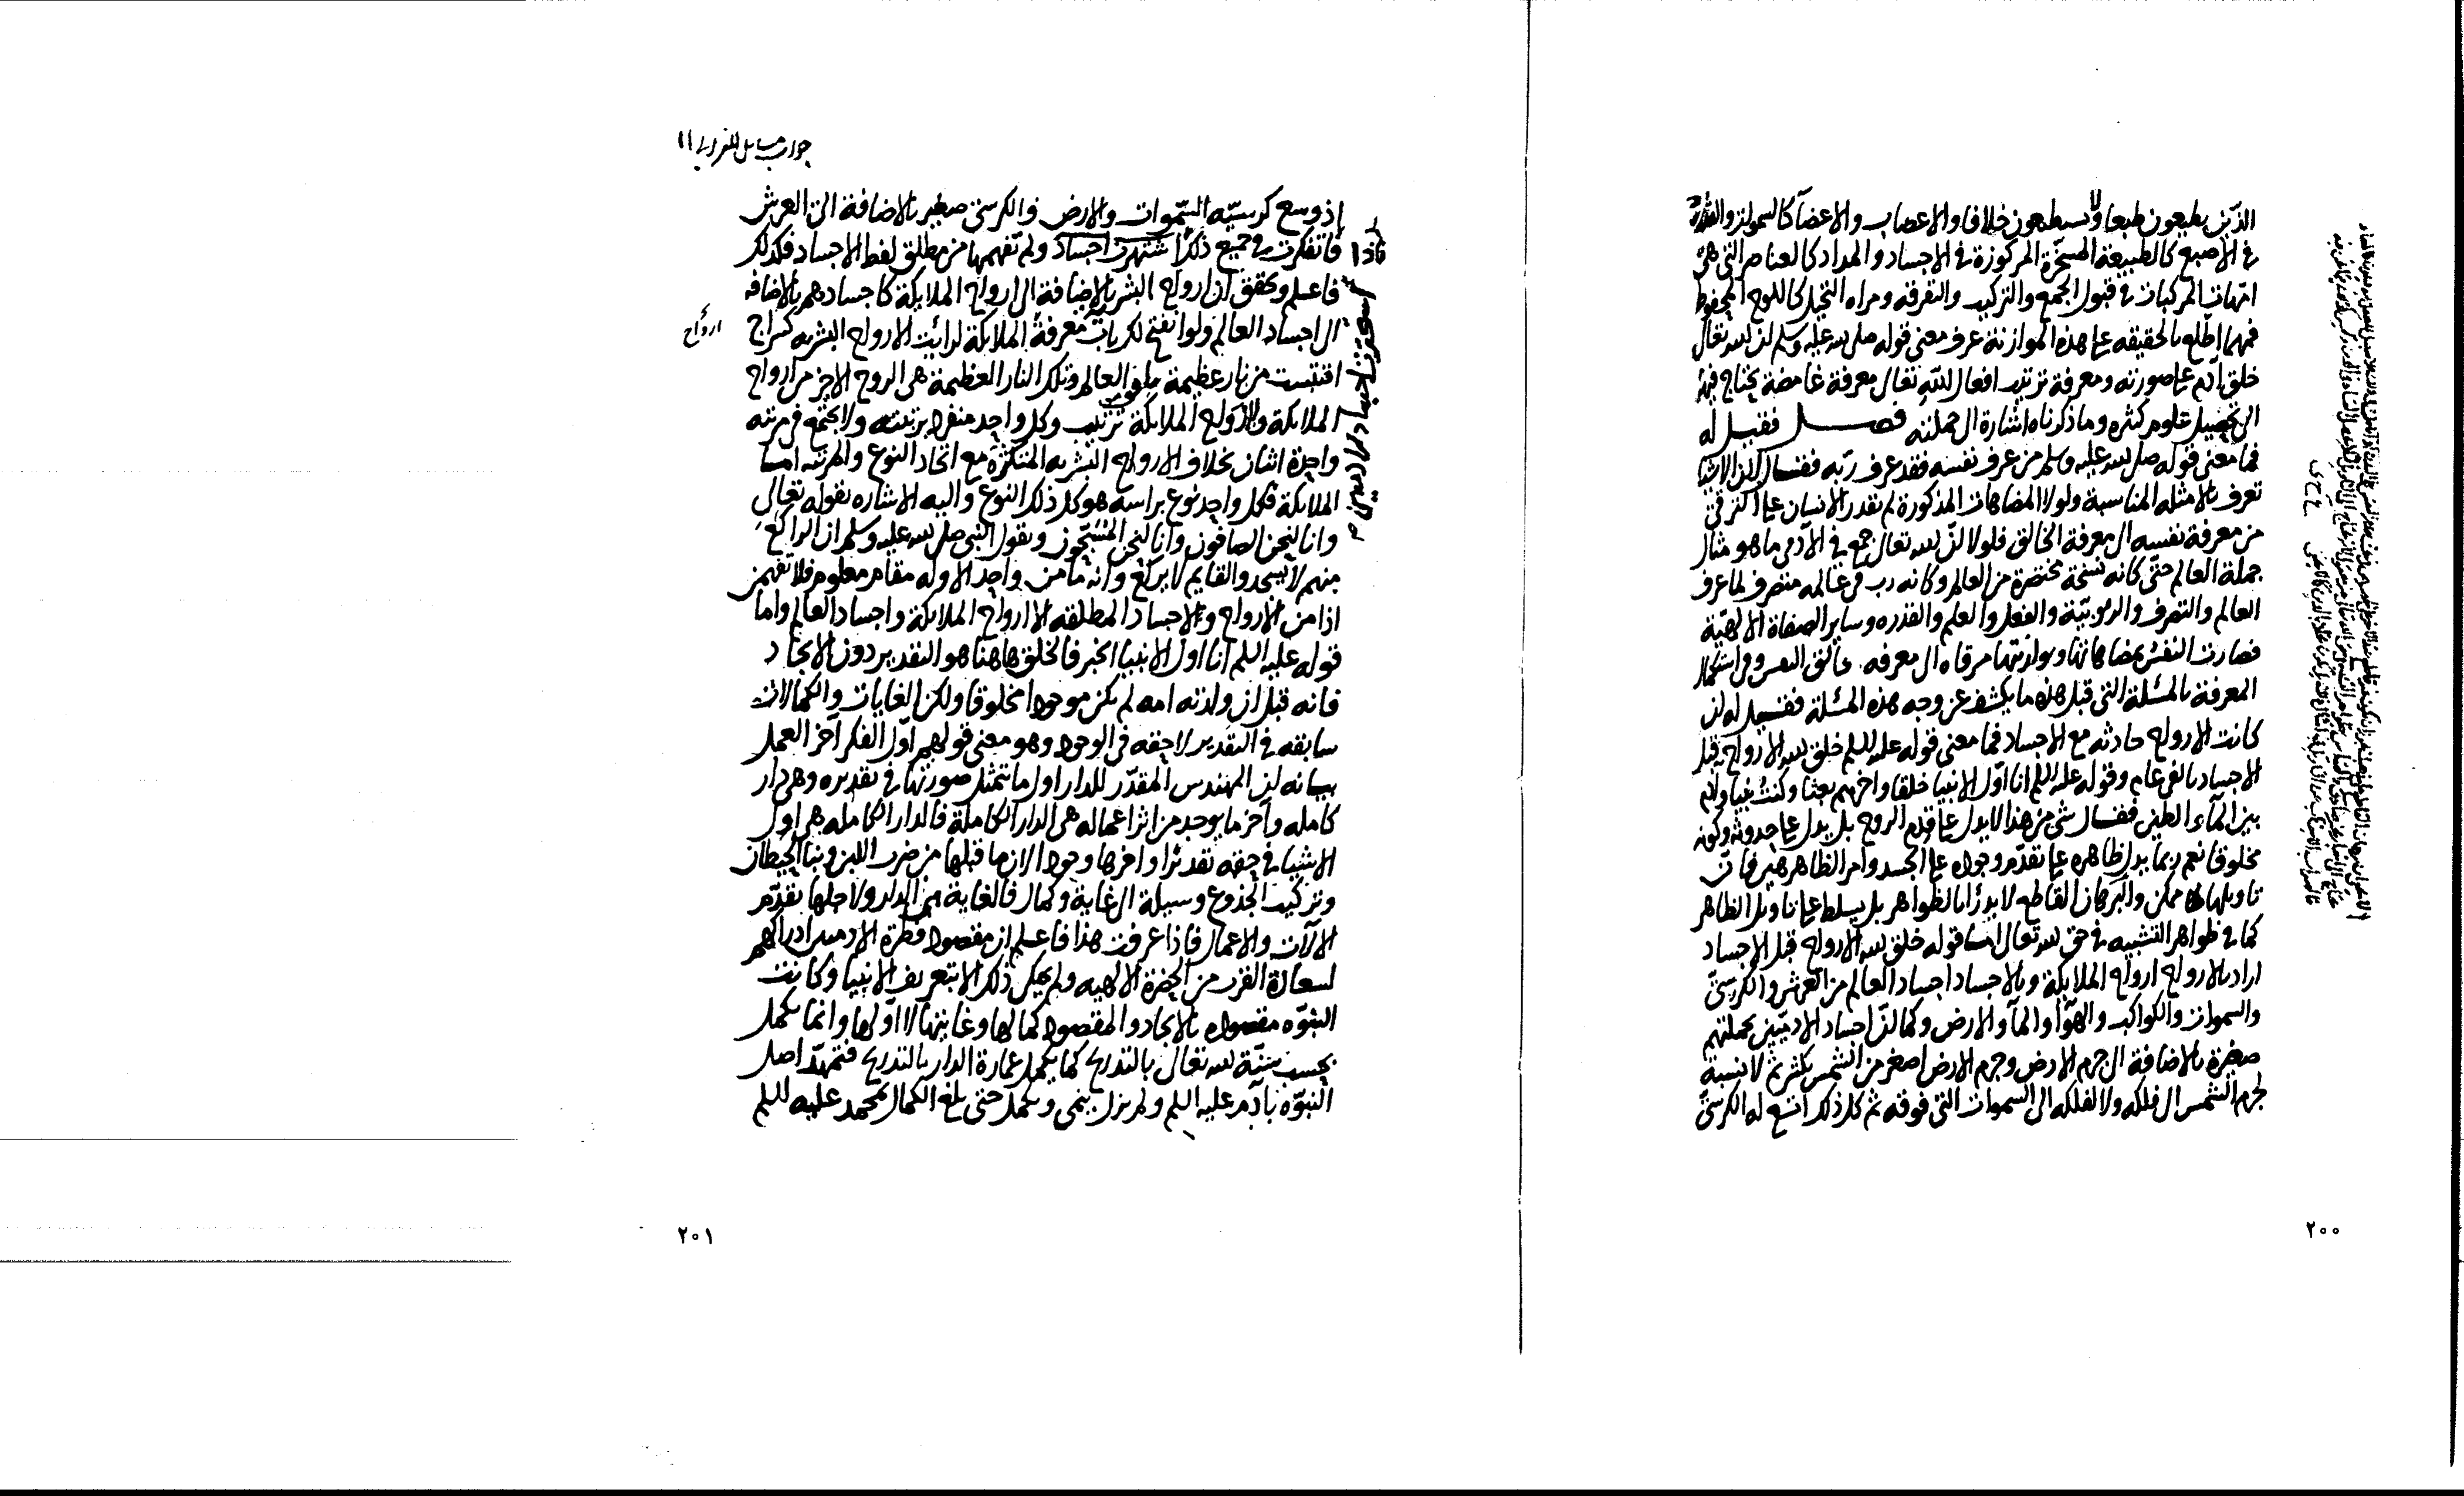 الذين يطيعون طبعا ولا يستطيعون خلافا والاعصاب والاعضآ كالسموات والقدرة
في الاصبع كالطبيعة المسخرة المركوزة في الاجساد والمداد كالعناصر التي هي
امهات المركبات في قبول الجمع والتركيب والتفرقة ومراه التخيل كاللوح المحفوظ
فمهما اطلع بالحقيقه على هذه الموازنة عرف معنى قوله صلى الله عليه وسلم ان الله تعالى
خلق آدم على صورته ومعرفة ترتيب افعال الله تعالى معرفة غامضة يحتاج فيها
الى تحصيل علوم كثيره وما ذكرناه اشارة الى جملته فصل فقيل له
فما معنى قوله صلى الله عليه وسلم من عرف نفسه فقد عرف ربه فقال لان الاشيا
تعرف بالامثله المناسبة ولولا المضاهات المذكورة لم يقدر الانسان على الترقي
من معرفة نفسه الى معرفة الخالق فلولا ان الله تعالى جمع في الآدمي ما هو مثال
جملة العالم حتى كانه نسخة مختصرة من العالم وكانه رب في عالمه متصرف لما عرف
العالم والتصرف والربوبيّة والفعل والعلم والقدره وساير الصفاة الالهيّة
فصارت النفس بمضاهاتها وموازنتها مرقاه الى معرفه خالق النفس وفي استكمال
المعرفة بالمسئلة التي قبل هذه ما يكشف عن وجه هذه المسئلة فقيل له ان
كانت الارواح حادثه مع الاجساد فما معنى قوله عليه السلم خلق الله الارواح قبل
الاجساد بالفي عام وقوله عليه السلم انا اوّل الانبيا خلقا واخرهم بعثا وكنت نبيا وادم
بين المآء والطين فقال شي من هذا لا يدل على قدم الروح بل يدل على حدوثه وكونه
مخلوقا نعم ربما يدل ظاهره على تقدّم وجوده على الجسد وامر الظاهر هين فان
تاويلها ممكن والبرهان القاطع لا يدرأ بالظواهر بل يسلط على تاويل الظاهر
كما في ظواهر التشبيه في حق الله تعالى اما قوله خلق الله الارواح قبل الاجساد
اراد بالارواح ارواح الملايكة وبالاجساد اجساد العالم من العرش والكرسيّ
والسموات والكواكب والهوآ والمآ والارض وكما انّ اجساد الادميّين بجملتهم
صغيرة بالاضافة الى جرم الارض وجرم الارض اصغر من الشمس بكثير ثم لا نسبة
لجرم الشمس الى فلكه ولا لفلكه الى السموات التي فوقه ثم كل ذلك اتسع له الكرسيّ
٢٠٠
جواب مسايل الغزالي ١١
إذ وسع كرسيّه السّموات والارض والكرسيّ صغير بالاضافة الى العرش
فاذا تفكرت في جميع ذلك اجساد ولم تفهمها من مطلق لفظ الاجساد فكذلك
فاعلم وتحقق ان ارواح البشر بالاضافة الى ارواح الملايكة كاجسادهم بالاضافه
الى اجساد العالم ولو انفتح لك باب معرفة الملايكة لرايت الارواح البشريه كسراج
ارواح
اقتبست من نار عظيمة العالم وتلك النار العظيمة هي الروح الاخير من ارواح
الملايكة ولارواح الملايكة ترتيب وكل واحد منفرد بترتيبه ولا يجتمع في مرتبه
واحدة اثنان بخلاف الارواح البشريه المتكثرة مع اتحاد النوع والمرتبه اما
الملايكة فكل واحد نوع براسه هو كل ذلك النوع واليه الاشاره بقوله تعالى
وانا لنحن الصافون وانا لنحن المسبّحون وبقول النبي صلى الله عليه وسلم ان الراكع
منهم لا يسجد والقايم لا يركع وانه ما من واحد الا وله مقام معلوم فلا تفهمن
اذا من الارواح والاجساد المطلقه الا ارواح الملايكة واجساد العالم واما
قوله عليه السلم انا اول الانبيا الخبر فالخلق هاهنا هو التقدير دون الايجاد
فانه قبل ان ولدته امه لم يكن موجودا مخلوقا ولكن الغايات والكمالات
سابقه في التقدير لاحقه في الوجود وهو معنى قولهم اوّل الفكر آخر العمل
بيانه ان المهندس المقدّر للدار اول ما تتمثل صورتها في تقديره وهي دار
كامله وآخر ما يوجد من اثر اعماله هي الدار الكاملة فالدار الكامله هي اول
الاشيا في حقه تقديرا واخرها وجودا لان ما قبلها من ضرب اللبن وبنا الحيطان
وتركيب الجذوع وسيلة الى غاية وكمال فالغاية هي الدار ولاجلها تقدّم
الآلات والاعمال فاذا عرفت هذا فاعلم ان مقصود فطرة الادميين ادراكهم
لسعادة القرب من الحضرة الالهيه ولم يمكن ذلك الا بتعريف الانبيا وكانت
النبوّه مقصوده بالايجاد والمقصود كمالها وغايتها لا اوّلها وانما يكمل
بحسب سنّة الله تعالى بالتدريج كما يكمل عمارة الدار بالتدريج فتمهّد اصل
النبوّه بآدم عليه السلم ولم يزل ينمى ويكمل حتى بلغ الكمال بمحمد عليه السلم
٢٠١